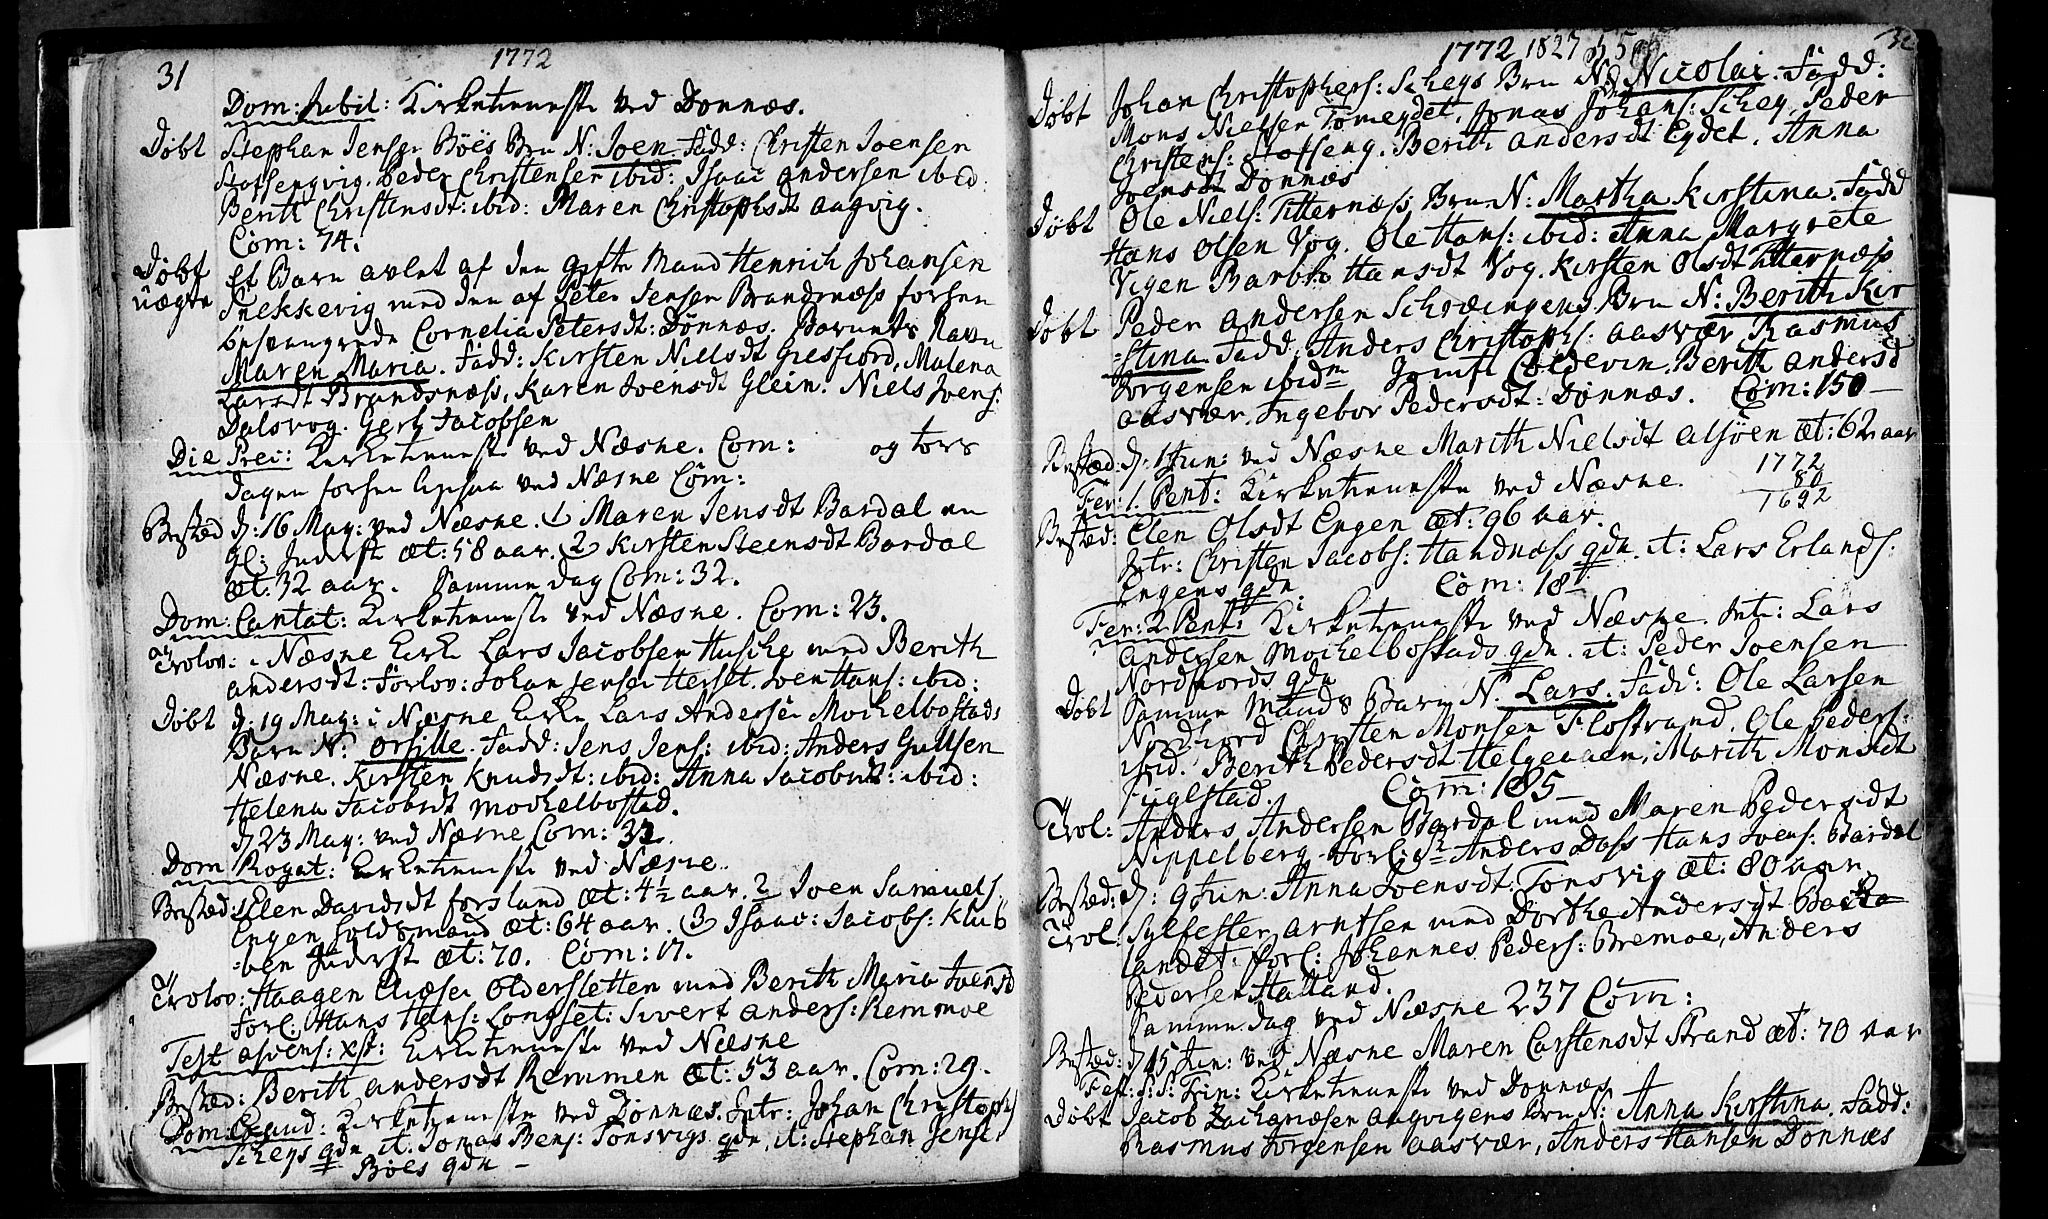 31
1772
Dom: Jubil: Kirketienneste ved Dønnæs.
Døbt Stephan Jensen Böes Brn N: Joen Fadd: Christen Joensen
Slotsengvig. Peder Christensen ibid: Isaac Andersen ibid:
Berith Christensdt: ibid: Maren Christophsdt Aagvig.
Com: 74.
Døbt Et Barn avlet af den gifte Mand Henrich Johansen
uægte Snekkevig med den af Peter Jensen Brandsnæss forhen
besvangrede Cornelia Petersdt: Dønnæs. Barnets Navn
Maren Maria. Fadd: Kirsten Nielsdt Giesfiord, Malena
Larsdt Brandsnæss, Karen Joensdt Glein. Niels Joens:
Dalsvog. Gert Jacobsen
Die Prec: Kirketienneste ved Næsne. Com: og tors
dagen forhen ved Næsne Com:
Bested d: 16 May: ved Næsne. 1 Maren Jensdt Bardal en
gl: Inderst æt: 58 aar. 2 Kirsten Steensdt Bardal
æt: 32 aar. Samme dag Com: 32.
Dom: Cantat: Kirketienneste ved Næsne. Com: 23.
Trolov: i Næsne Kirke Lars Jacobsen Husche med Berith
Andersdt: Forlov: Johan Jensen Herset. Joen Hans: ibid:
Døbt d: 19 May: i Næsne Kirke Lars Andersen Mochelbostads
Barn N: Orsille. Fadd: Jens Jens: ibid: Anders Gullsen
Næsne. Kirsten Knudsdt: ibid: Anna Jacobsdt: ibid:
Helena Jacobsdt Mochelbostad.
d 23 May: ved Næsne Com: 32.
Dom Rogat: Kirketienneste ved Næsne.
Bested: 1 Elen Davidsdt Forsland æt: 4½ aar. 2 Joen Samuels:
Engen Foldsmand æt: 64 aar. 3 Isaac: Jacobs: Klub
=ben Inderst æt: 70. Com: 17.
Trolov: Haagen Eliæsen Oldersletten med Berith Maria Joensd
Forl: Hans Hans: Longset: Sivert Anders: Remmoe
Fest Ascens: Xsti: Kirketienneste ved Næsne
Bested: Berith Andersdt Remmen æt: 53 aar. Com: 29.
Dom: Exaud: Kirketienneste ved Dønnæs. Intr: Johan Christoph
Scheys qdn it. Jonas Bens: Tonsvigs qdn, it: Stephan Jens:
Böes qdn –
1772 1827 55
32
Døbt Johan Christophers: Scheys Brn N: Nicolai. Fadd:
Mons Nielsen Tomeydet, Jonas Johans: Schey, Peder
Christens: Slotseng. Berith Andersdt Eydet. Anna
Joensdt Dønnæs
Døbt Ole Niels: Titternæss Brn N: Martha Kirstina. Fadd
Hans Olsen Vog. Ole Hans: ibid: Anna Margrete
Vigen Barbro Hansdt Vog. Kirsten Olsdt Titternæss
Døbt Peder Andersen Schrovingens Brn N: Berith Kir
=stina Fadd. Anders Christophs: Aasvær, Rasmus
Jorgensen ibidm Jomfr Coldevin. Berith Andersd
Aasvær. Ingebor Pedersdt: Dønnæs. Com: 150 –
Bested: d: 1 Jun: ved Næsne Marith Nielsdt Alsöen æt: 62 aar
Fer: 1. Pent: Kirketienneste ved Næsne. 1772
80
1692
Bested: Elen Olsdt Engen æt: 96 aar.
Intr: Christen Jacobs: Handnæss qdn. it: Lars Erlands:
Engens qdn. Com: 18 –
Fer: 2 Pent: Kirketienneste ved Næsne. Intr: Lars
Andersen Mochelbostads qdn. it: Peder Joensen
Nordfiords qdn
Døbt Samme Mands Barn N. Lars. Fadd: Ole Larsen
Nordfiord Christen Monsen Flostrand. Ole Peders:
ibid. Berith Pedersdt Helgeaaen, Marith Monsdt
Fuglstad. Com: 185 –
Trol: Anders Andersen Bardal med Maren Pedersdt
Nippelberg. Forl: Sr Anders Dass Hans Joens: Bardal
Bested: d: 9 Jun: Anna Joensdt: Tonsvig æt: 80 aar.
Trol: Sylfester Arntsen med Dorthe Andersdt Baka
landet. Forl: Johannes Peders: Bremoe, Anders
Pedersen Hatland.
Samme dag ved Næsne 237 Com:
Bested: d 15 Jun: ved Næsne Maren Carstensdt Strand æt: 70 aar
Fest: S: S: Trin: Kirketienneste ved Dønnæs
Døbt Jacob Zachariæsen Aagvigens Brn N: Anna Kirstina. Fadd:
Rasmus Jorgensen Aasvær, Anders Hansen Dønnæs